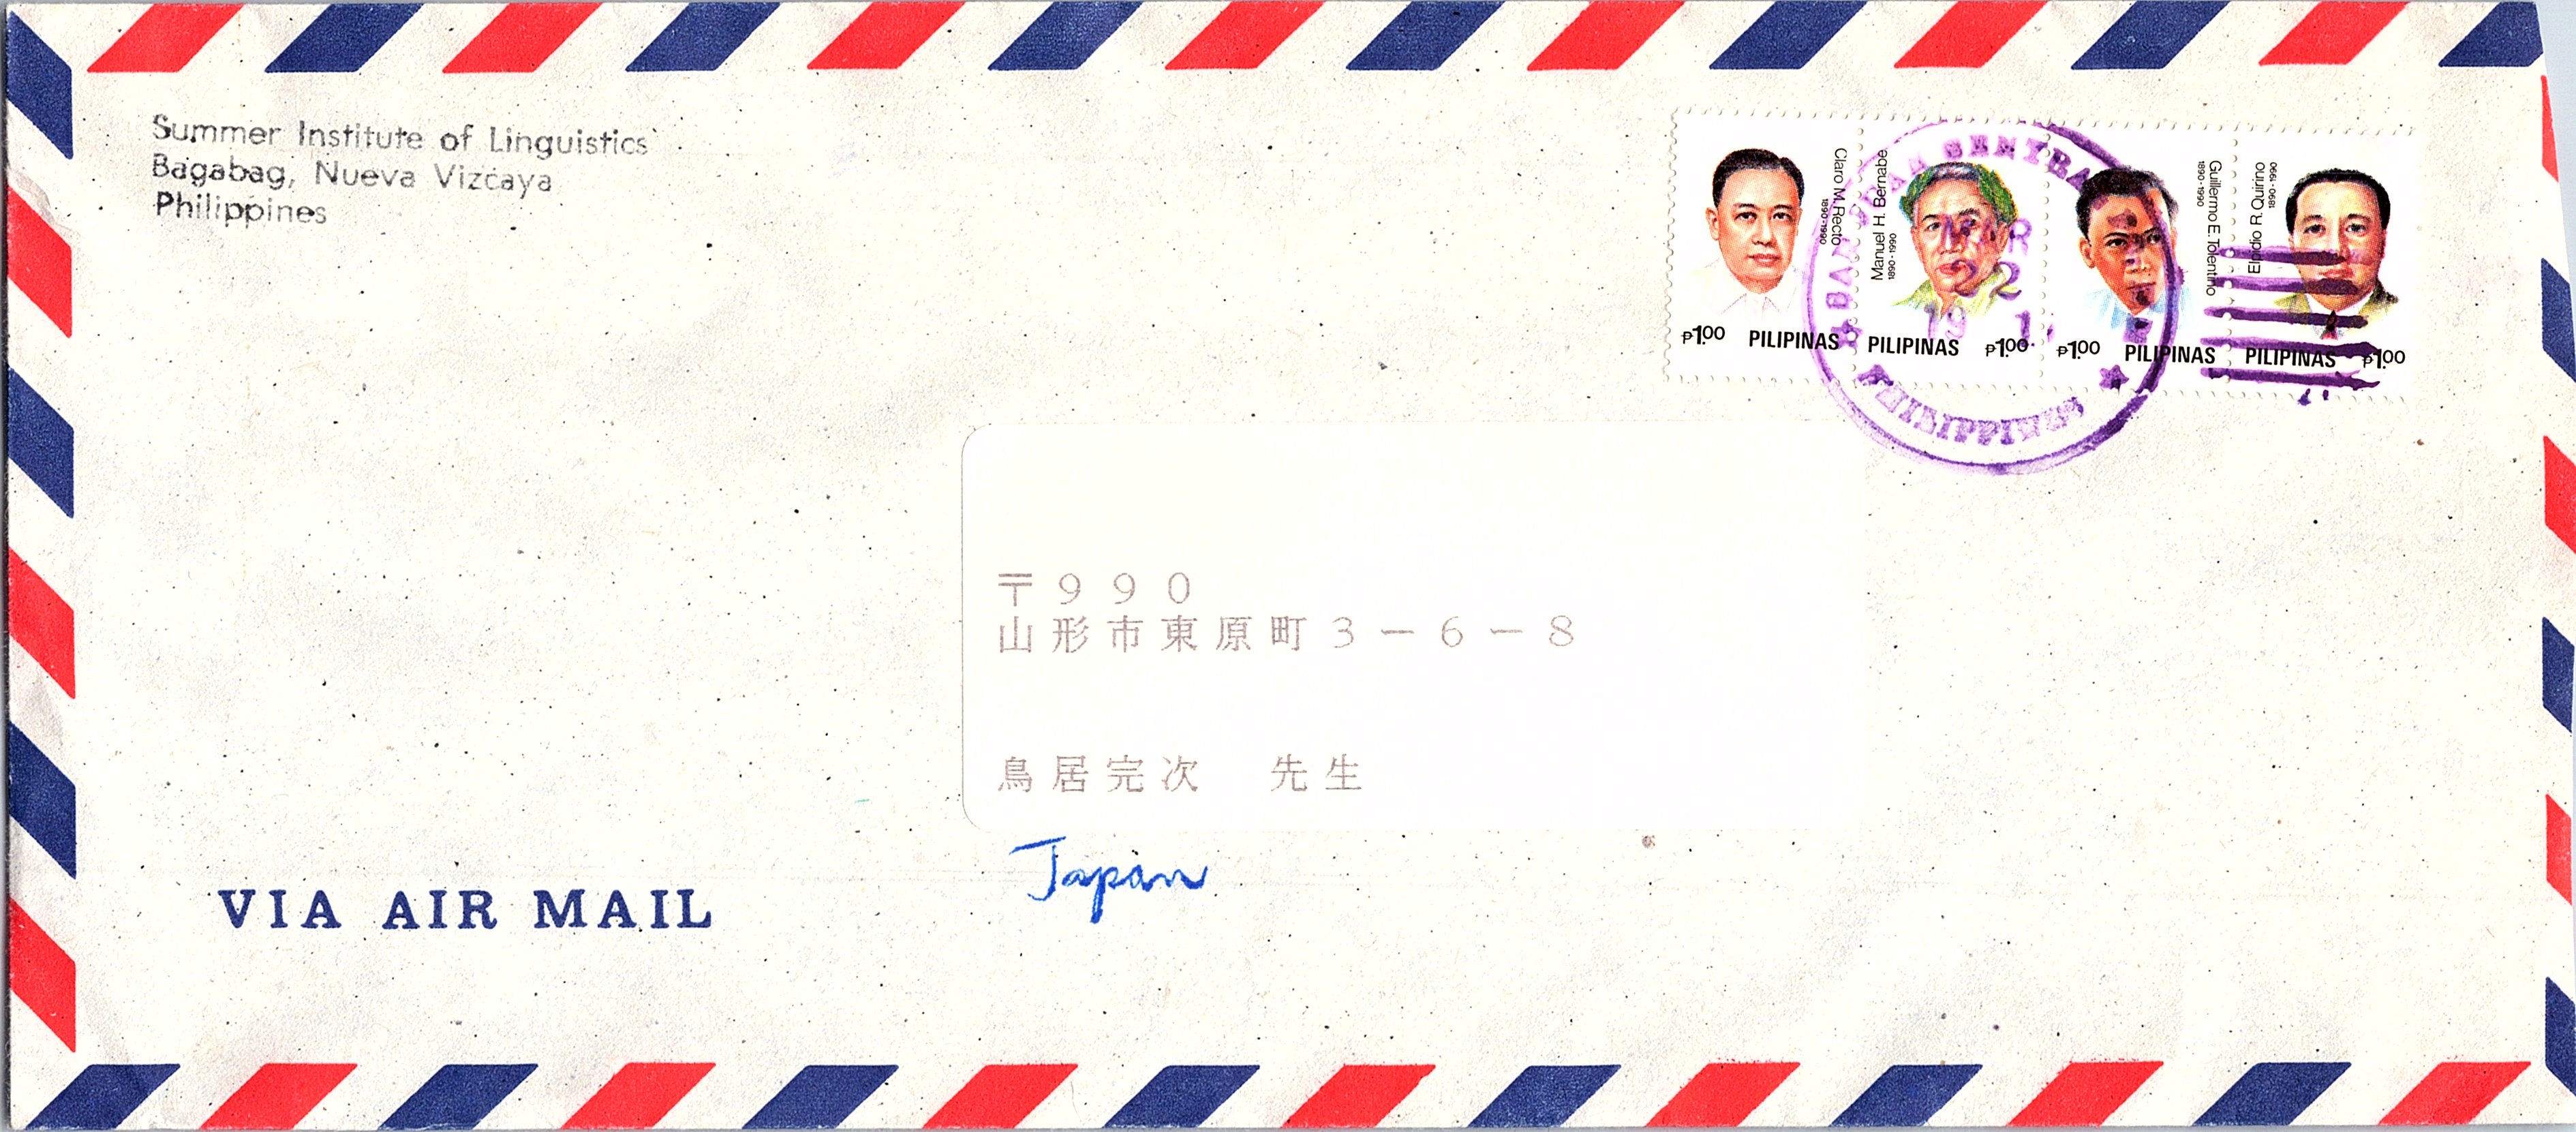 Summer Institute of Linguistics
Bagabag, Nueva Vizcaya
Philippines
Claro M. Recto
1890-1990
₱1.00 PILIPINAS
Manuel H. Bernabe
1890-1990
PILIPINAS ₱1.00
Guillermo E. Tolentino
1890-1990
₱1.00 PILIPINAS
Elpidio R. Quirino
1890-1990
PILIPINAS ₱1.00
SENTRA
22
19
PHILIPPINES
〒990
山形市東原町3-6-8
鳥居完次 先生
Japan
VIA AIR MAIL